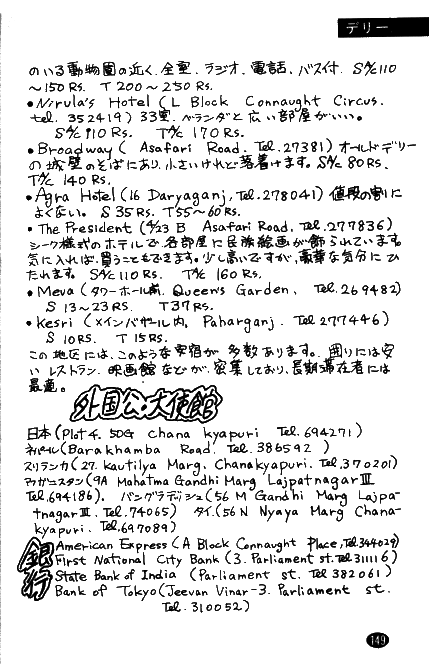 デリー
のいる動物園の近く. 全室. ラジオ. 電話. バス付. S A/c 110
～150 Rs. T 200～250 Rs.
• Nirula's Hotel (L Block Connaught Circus.
tel. 352419) 33室. ベランダと広い部屋がいい。
S A/c 110 Rs. T A/c 170 Rs.
• Broadway ( Asafari Road. Tel. 27381) オールドデリー
の城壁のそばにあり、小さいけれど落着けます。S A/c 80 Rs.
T A/c 140 Rs.
• Agra Hotel (16 Daryaganj, Tel. 278041) 値段の割に
よくない。 S 35 Rs. T 55～60 Rs.
• The President (4/23 B Asafari Road, Tel. 277836)
シーク様式のホテルで各部屋に民族絵画が飾られています。
気に入れば、買うこともできます。少し高いですが、豪華な気分にひ
たれます。 S A/c 110 Rs. T A/c 160 Rs.
• Meva (タワーホール前. Queen's Garden, Tel. 269482)
S 13～23 Rs. T 37 Rs.
• Kesri (メインバザール内, Paharganj. Tel 277446)
S 10 Rs. T 15 Rs.
この地区には、このような安宿が多数あります。囲りには安
いレストラン、映画館などが密集しており、長期滞在者には
最適。
外国公・大使館
日本 (Plot 4. 50G Chana kyapuri Tel. 694271)
ネパール (Barakhamba Road. Tel. 386592 )
スリランカ (27. Kautilya Marg, Chanakyapuri. Tel. 370201)
アフガニスタン (9A Mahatma Gandhi Marg Lajpatnagar III
Tel. 694186). バングラデッシュ (56 M Gandhi Marg Lajpa-
tnagar III. Tel. 74065) タイ. (56 N Nyaya Marg Chana-
kyapuri. Tel. 697089)
銀行
American Express (A Block Connaught Place, Tel. 344029)
First National City Bank (3. Parliament st. Tel 311116)
State Bank of India (Parliament st. Tel 382061)
Bank of Tokyo (Jeevan Vihar-3. Parliament st.
Tel. 310052)
149